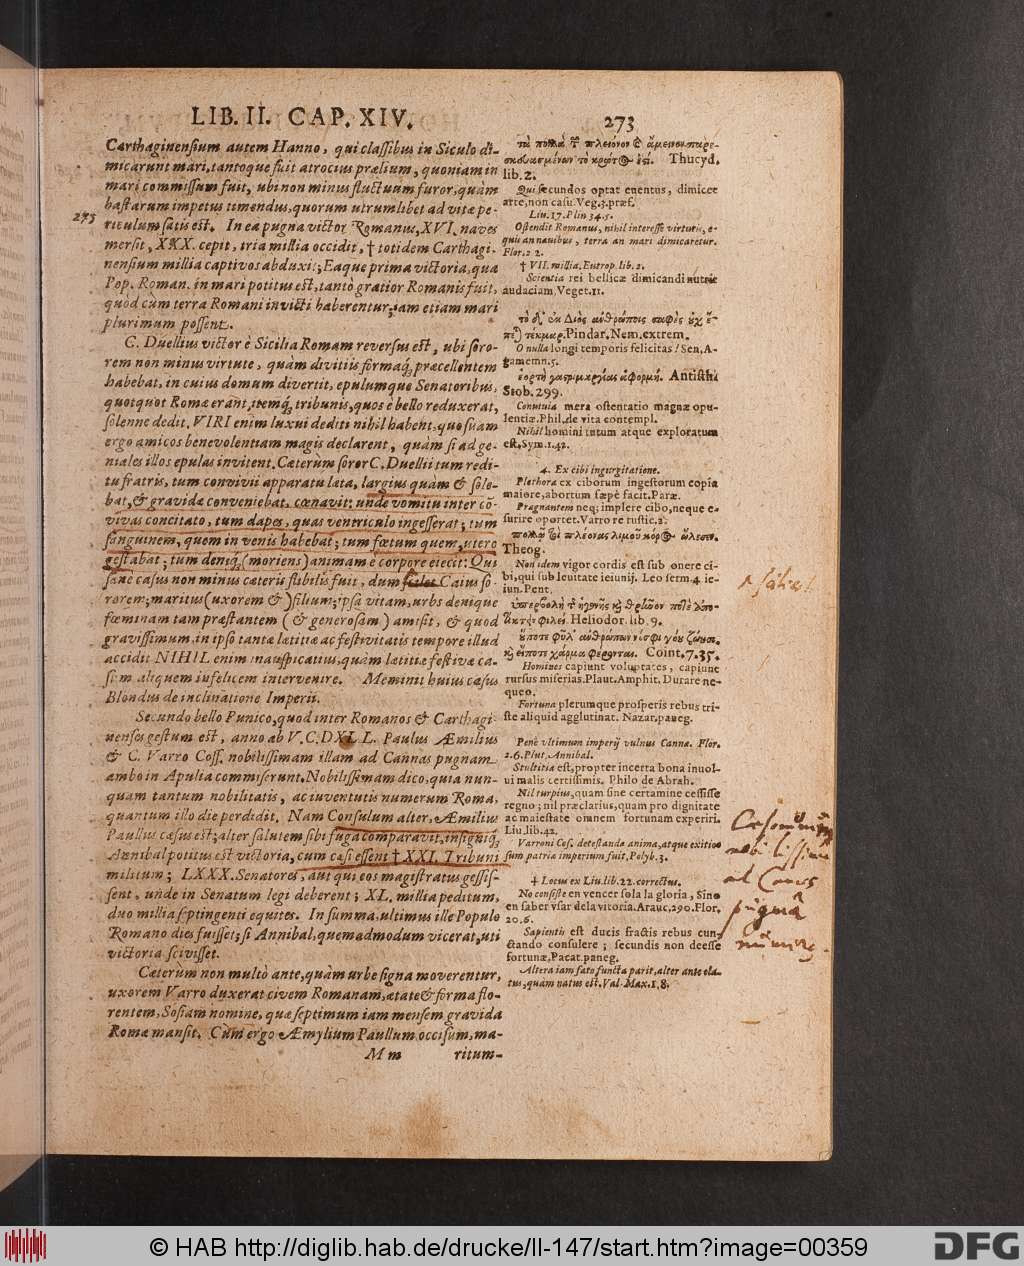 LIB. II. CAP. XIV. 273
Carthaginensium autem Hanno, qui classibus in Siculo di-
micarunt mari, tantoque fuit atrocius prælium, quoniam in
mari commissum fuit, ubi non minus fluctuum furor, quàm
hastarum impetus timendus, quorum utrumlibet ad vitæ pe-
273
riculum satis est. In ea pugna victor Romanus, XVI. naves
mersit, XXX. cepit, tria millia occidit, † totidem Carthagi-
nensium millia captivos abduxit; Eaque prima victoria, qua
Pop. Roman. in mari potitus est, tantò gratior Romanis fuit,
quòd cùm terra Romani invicti haberentur; iam etiam mari
plurimum possent.
C. Duellius victor è Sicilia Romam reversus est, ubi soro-
rem non minus virtute, quàm divitiis formaq́; præcellentem
habebat, in cuius domum divertit, epulumque Senatoribus,
quotquot Romæ erant, itemq́; tribunis, quos è bello reduxerat,
solenne dedit. VIRI enim luxui dediti nihil habent, quo suam
ergo amicos benevolentiam magis declarent, quàm si ad ge-
niales illos epulas invitent. Cæterùm soror C. Duellii tum redi-
tu fratris, tum convivii apparatu læta, largius quàm & sole-
bat, & gravidæ conveniebat, cœnavit: unde vomitu inter cō-
vivas concitato, tum dapes, quas ventriculo ingesserat; tum
sanguinem, quem in venis habebat; tum fœtum quem, utero
gestabat; tum deniq́; (moriens) animam è corpore eiecit: Qui
sane casus non minus cæteris flebilis fuit, dum Caius so-
rorem; maritus (uxorem &) filium; ipsa vitam, urbs denique
fœminam tam præstantem ( & generosam ) amisit, & quod
gravissimum, in ipso tantæ lætitiæ ac festivitatis tempore illud
accidit. NIHIL enim inauspicatius, quàm lætitiæ festivæ ca-
sum aliquem infelicem intervenire. Meminit huius casus
Blondus de inclinatione Imperii.
Secundo bello Punico, quod inter Romanos & Carthagi-
nenses gestum est, anno ab V. C. DXL L. Paulus Æmilius
& C. Varro Coss. nobilissimam illam ad Cannas pugnam
ambo in Apulia commiserunt. Nobilissimam dico, quia nun-
quam tantum nobilitatis, ac iuventutis numerum Roma,
quantum illo die perdidit. Nam Consulum alter, Æmilius
Paullus cæsus est; alter salutem sibi fuga comparavit, insigniq́;
Annibal potitus est victoria, cum cæsi essent † XXI. Tribuni
militum; LXXX. Senatores, aut qui eos magistratus gessis-
sent, unde in Senatum legi deberent; XL. millia peditum,
duo millia septingenti equites. In summa, ultimus ille Populo
Romano dies fuisset; si Annibal, quemadmodum vicerat, uti
victoria scivisset.
Cæterùm non multò ante, quàm urbe signa moverentur,
uxorem Varro duxerat civem Romanam, ætate & forma flo-
rentem, Sosiam nomine, quæ septimum iam mensem gravida
Romæ mansit. Cùm ergo Æmylium Paullum occisum, ma-
M m ritum-
Thucyd.
lib. 2.
Qui secundos optat euentus, dimicet
arte, non casu. Veg. 3. præf.
Liu. 17. Plin 34. 5.
Ostendit Romanus, nihil interesse virtutis, e-
quis an nauibus, terra an mari dimicaretur.
Flor. 2 2.
† VII. millia. Eutrop. lib. 2.
Scientia rei bellicæ dimicandi nutrit
audaciam. Veget. 11.
Pindar. Nem. extrem.
O nulla longi temporis felicitas! Sen. A-
gamemn. 5.
ἑορτὴ γαστριμαργίας ἀφορμή. Antisth.
Stob. 299.
Conuiuia mera ostentatio magnæ opu-
lentiæ. Phil. de vita contempl.
Nihil homini tutum atque exploratum
est. Sym. 1. 42.
4. Ex cibi ingurgitatione.
Plethora ex ciborum ingestorum copia
maiore, abortum sæpè facit. Paræ.
Pragnantem neq; implere cibo, neque e-
surire oportet. Varro re rustic. 2.
Theog.
Non idem vigor cordis est sub onere ci-
bi, qui sub leuitate ieiunij. Leo serm. 4 ie-
iun. Pent.
Heliodor. lib. 9.
Coint. 7. 35.
Homines capiunt voluptates, capiunt
rursus miserias. Plaut. Amphit. Durare ne-
queo.
Fortuna plerumque prosperis rebus tri-
ste aliquid agglutinat. Nazar. paneg.
Penè vltimum imperij vulnus Cannæ. Flor.
2. 6. Plut. Annibal.
Stultitia est, propter incerta bona inuol-
ui malis certissimis. Philo de Abrah.
Nil turpius, quam sine certamine cessisse
regno; nil præclarius, quam pro dignitate
ac maiestate omnem fortunam experiri.
Liu. lib. 42.
Varroni Cos. detestanda anima, atque exitio
sum patria imperium fuit. Polyb. 3.
† Locus ex Liu. lib. 22. correctus.
No consiste en vencer sola la gloria, Sino
en saber vsar dela vitoria. Arauc. 290. Flor.
20. 6.
Sapientis est ducis fractis rebus cun-
ctando consulere; secundis non deesse
fortunæ. Pacat. paneg.
Altera iam fato functa parit, alter ante ela-
tus, quam natus est. Val. Max. 1, 8.
nobilissima
ad Canas
pugna
numerus
© HAB http://diglib.hab.de/drucke/ll-147/start.htm?image=00359
DFG